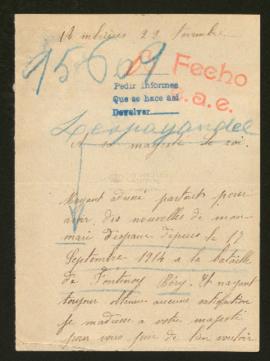 22 Novembre
15609
Fecho
a.e.
Pedir informes
Que se hace así
Devolver
A sa majesté le roi.
Ayant partout pour
avoir des nouvelles de mon
mari disparu depuis le 17
Septembre 1914 à la bataille
de Fontenoy Et nayant
toujour obtenu aucune satisfaction
je madresse a votre majesté
pour vous prier de bien vouloir